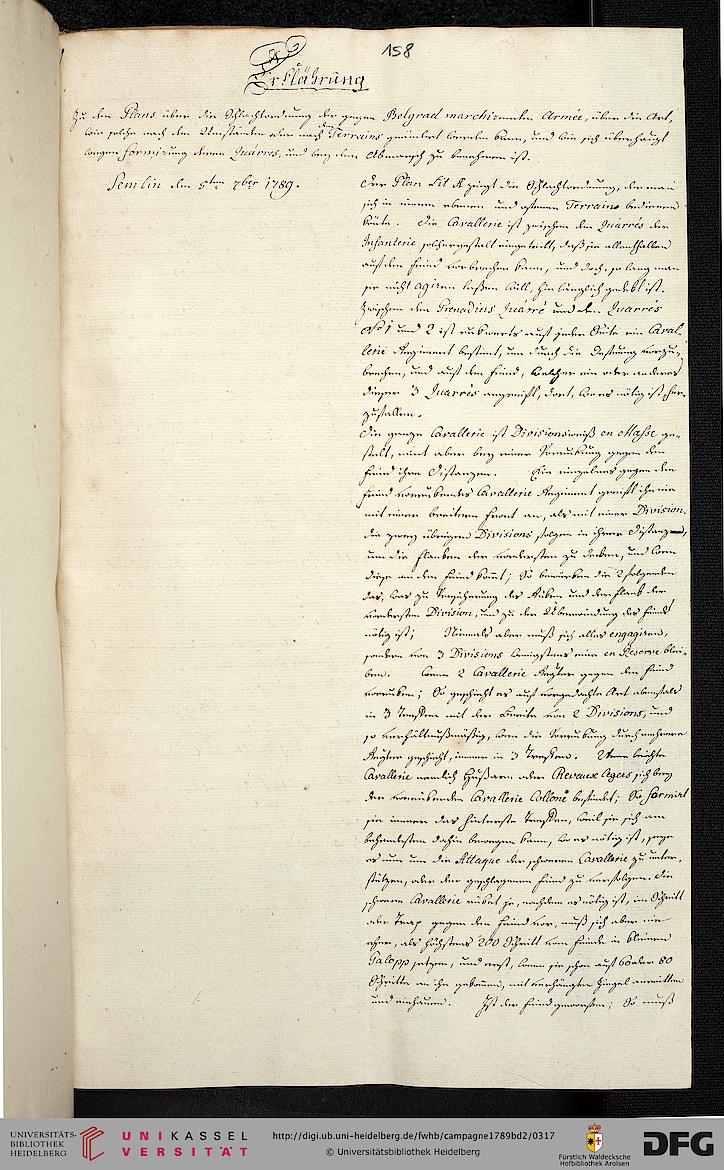 158
Erklährung
Zu dem Plans über die Schlachtordnung der gegen Belgrad marchirenden Armée, über die Art,
wie solche nach den Umständen oder nach Terrains geändert werden kann, und wie sich überhaupt
wegen formirung deren Quárrés, und bey dem Abmarsch zu benehmen ist.
Semlin den 5ten 7ber 1789.
Der Plan Lit A zeigt die Schlachtordnung, der man
sich in einem ebenen und offenen Terrains bedienen
könte. Die Cavallerie ist zwischen den Quárrés der
Infanterie solchergestalt eingeteilt, daß sie allenthalben
auf den Feind vorbrechen kann, und doch, so lang man
sie nicht agiren laßen will, hinlänglich gedekt ist.
Zwischen dem Grenadiers Quárré und den Quarrés
No 1 und 2 ist rukwerts auf jeder Seite ein Caval-
lerie Regiment bestimt, um durch die Oefnung vorzu-
brechen, und auf den Feind, welcher ein oder anderes
dieser 3 Quarrés angreift, dort, wo es nötig ist, her-
zufallen.
Die ganze Cavallerie ist Divisionsweiß en Masse ge-
stelt, nimt aber bey einer Vorrukung gegen den
Feind ihre Distanzen. Ein einzelnes gegen den
Feind vorrukendes Cavallerie Regiment greift ihn nie
mit einer breitern Front an, als mit einer Division.
die zwey übrigen Divisions folgen in ihrer Distanz,
um die Flanken der vordersten zu deken, und wenn
diese an den Feind komt; So bewürken die 2 folgenden
das, was zu Versicherung des Rüken und der Flank der
vordersten Division, und zu der Überwindung des Feinds
nötig ist; Niemals aber muß sich alles engagiren,
sondern von 3 Divisions wenigstens eine en Reserve blei-
ben. Wenn 2 Cavallerie Regter gegen den Feind
vorruken; So geschieht es auf vorgedachte Art ebenfals
in 3 Treffen mit der Breite von 2 Divisions, und
so verhältnußmäßig, wen die Vorrukung durch mehrere
Regter geschieht, immer in 3 Treffen. Wenn leichte
Cavallerie nemlich Hußaren oder Chevaux legers sich bey
der vorrukenden Cavallerie Collone befindet; So formirt
sie immer das hinterste Treffen, weil sie sich am
behendesten dahin bewegen kann, wo es nötig ist, seye
es nun um die Attaque der schweren Cavallerie zu unter-
stützen, oder den geschlagenen Feind zu verfolgen. Die
schwere Cavallerie ruket je, nachdem es nötig ist, im Schritt
oder Trap gegen den Feind vor, muß sich aber nie
eher, als höchstens 200 Schritt vom Feinde in kleinen
Galopp setzen, und erst, wenn sie schon auf 60 oder 80
Schritte an ihn gekommen, mit verhängten Zügel anreitten
und einhauen. Ist der Feind geworfen; So muß
UNIVERSITÄTS-
BIBLIOTHEK
HEIDELBERG
UNIKASSEL
VERSITÄT
http://digi.ub.uni-heidelberg.de/fwhb/campagne1789bd2/0317
© Universitätsbibliothek Heidelberg
Fürstlich Waldecksche
Hofbibliothek Arolsen
DFG